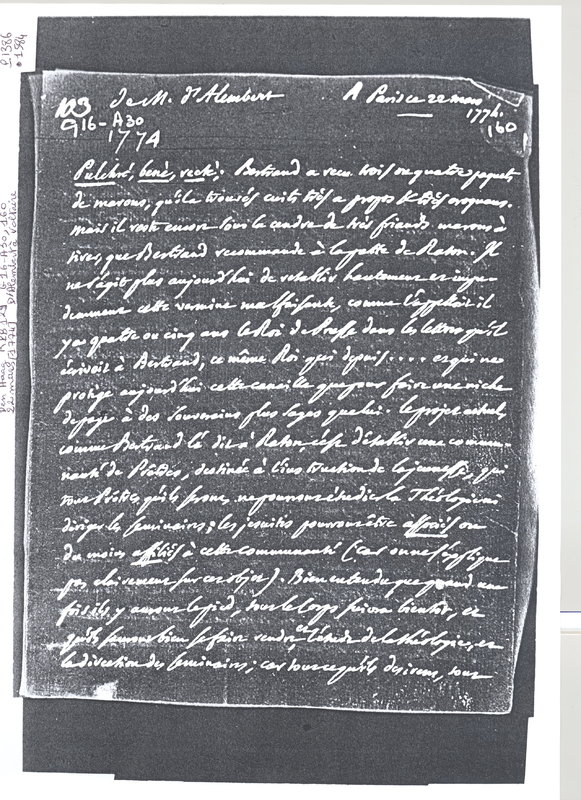 103 de M. d'Alembert A Paris ce 22 mars
G 16 - A30 1774.
1774 160
Pulchrè, benè, rectè. Bertrand a reçu trois ou quatre paquets
de marons, qu'il a trouvés cuits très a propos & très croquans.
mais il reste encor sous la cendre de très friands marons à
tirer, que Bertrand recommande à la patte de Raton. Il
ne s'agit plus aujourd'hui de rétablir hautement et impu
demment cette vermine malfaisante, comme l'appelloit il
y a quatre ou cinq ans le Roi de Prusse dans les lettres qu'il
écrivoit à Bertrand, ce même Roi qui depuis.... et qui ne
protege aujourd'hui cette canaille que pour faire une niche
de page à des Souverains plus sages que lui. le projet actuel,
comme Bertrand l'a dit à Raton, c'est d'établir une commu-
nauté de Prêtres, destinée à l'instruction de la jeunesse, qui
tous Prêtres qu'ils seront, ne pourront étudier la Théologie ni
diriger les seminaires; les jesuites pourront être associés ou
du moins affiliés à cette communauté (car on ne s'explique
pas clairement sur cet objet). Bien entendu que quand une
fois ils y auront le pied, tout le corps suivra bientôt, et
qu'ils sauront bien se faire rendre et l'étude de la théologie, et
la direction des seminaires; car tout ce qu'ils desirent, tout
Den Haag KHA 29 G 16-A30, 160
22 mars [1774] D'Alembert à Voltaire
P 1386
° 1984